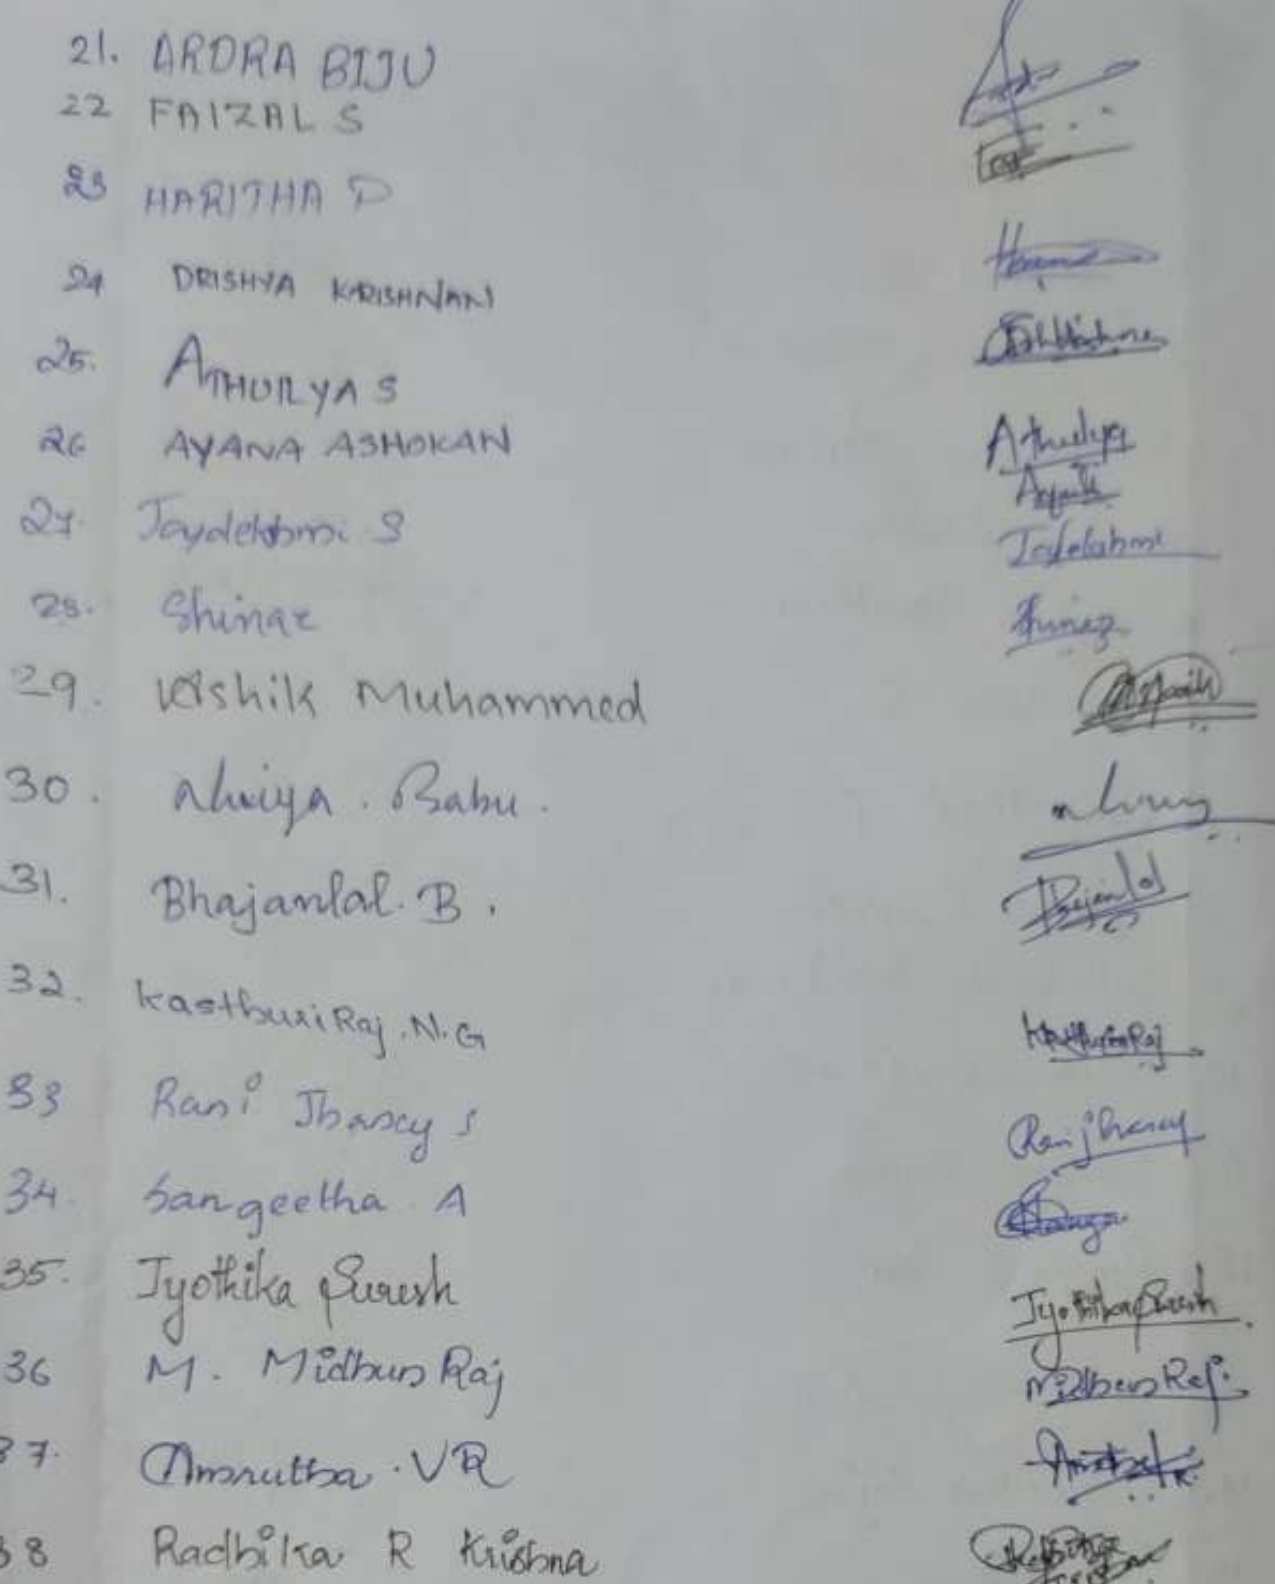 21. ARDRA BIJU
22 FAIZAL S
23 HARITHA P
24 DRISHYA KRISHNAN
25. ATHULYA S
Athulya
26 AYANA ASHOKAN
27. Jayalekshmi S
28. Shinaz
Shinaz
29. Ashik Muhammed
30. Alwiya . Babu .
31. Bhajanlal. B .
Bhajanlal
32. Kasthuri Raj . N. G
KasthuriRaj
33 Rani Jhancy S
Rani jhancy
34. Sangeetha A
35. Jyothika Suresh
Jyothika Suresh
36 M. Midhun Raj
Midhun Raj
37. Amrutha . V R
38 Radhika R Krishna